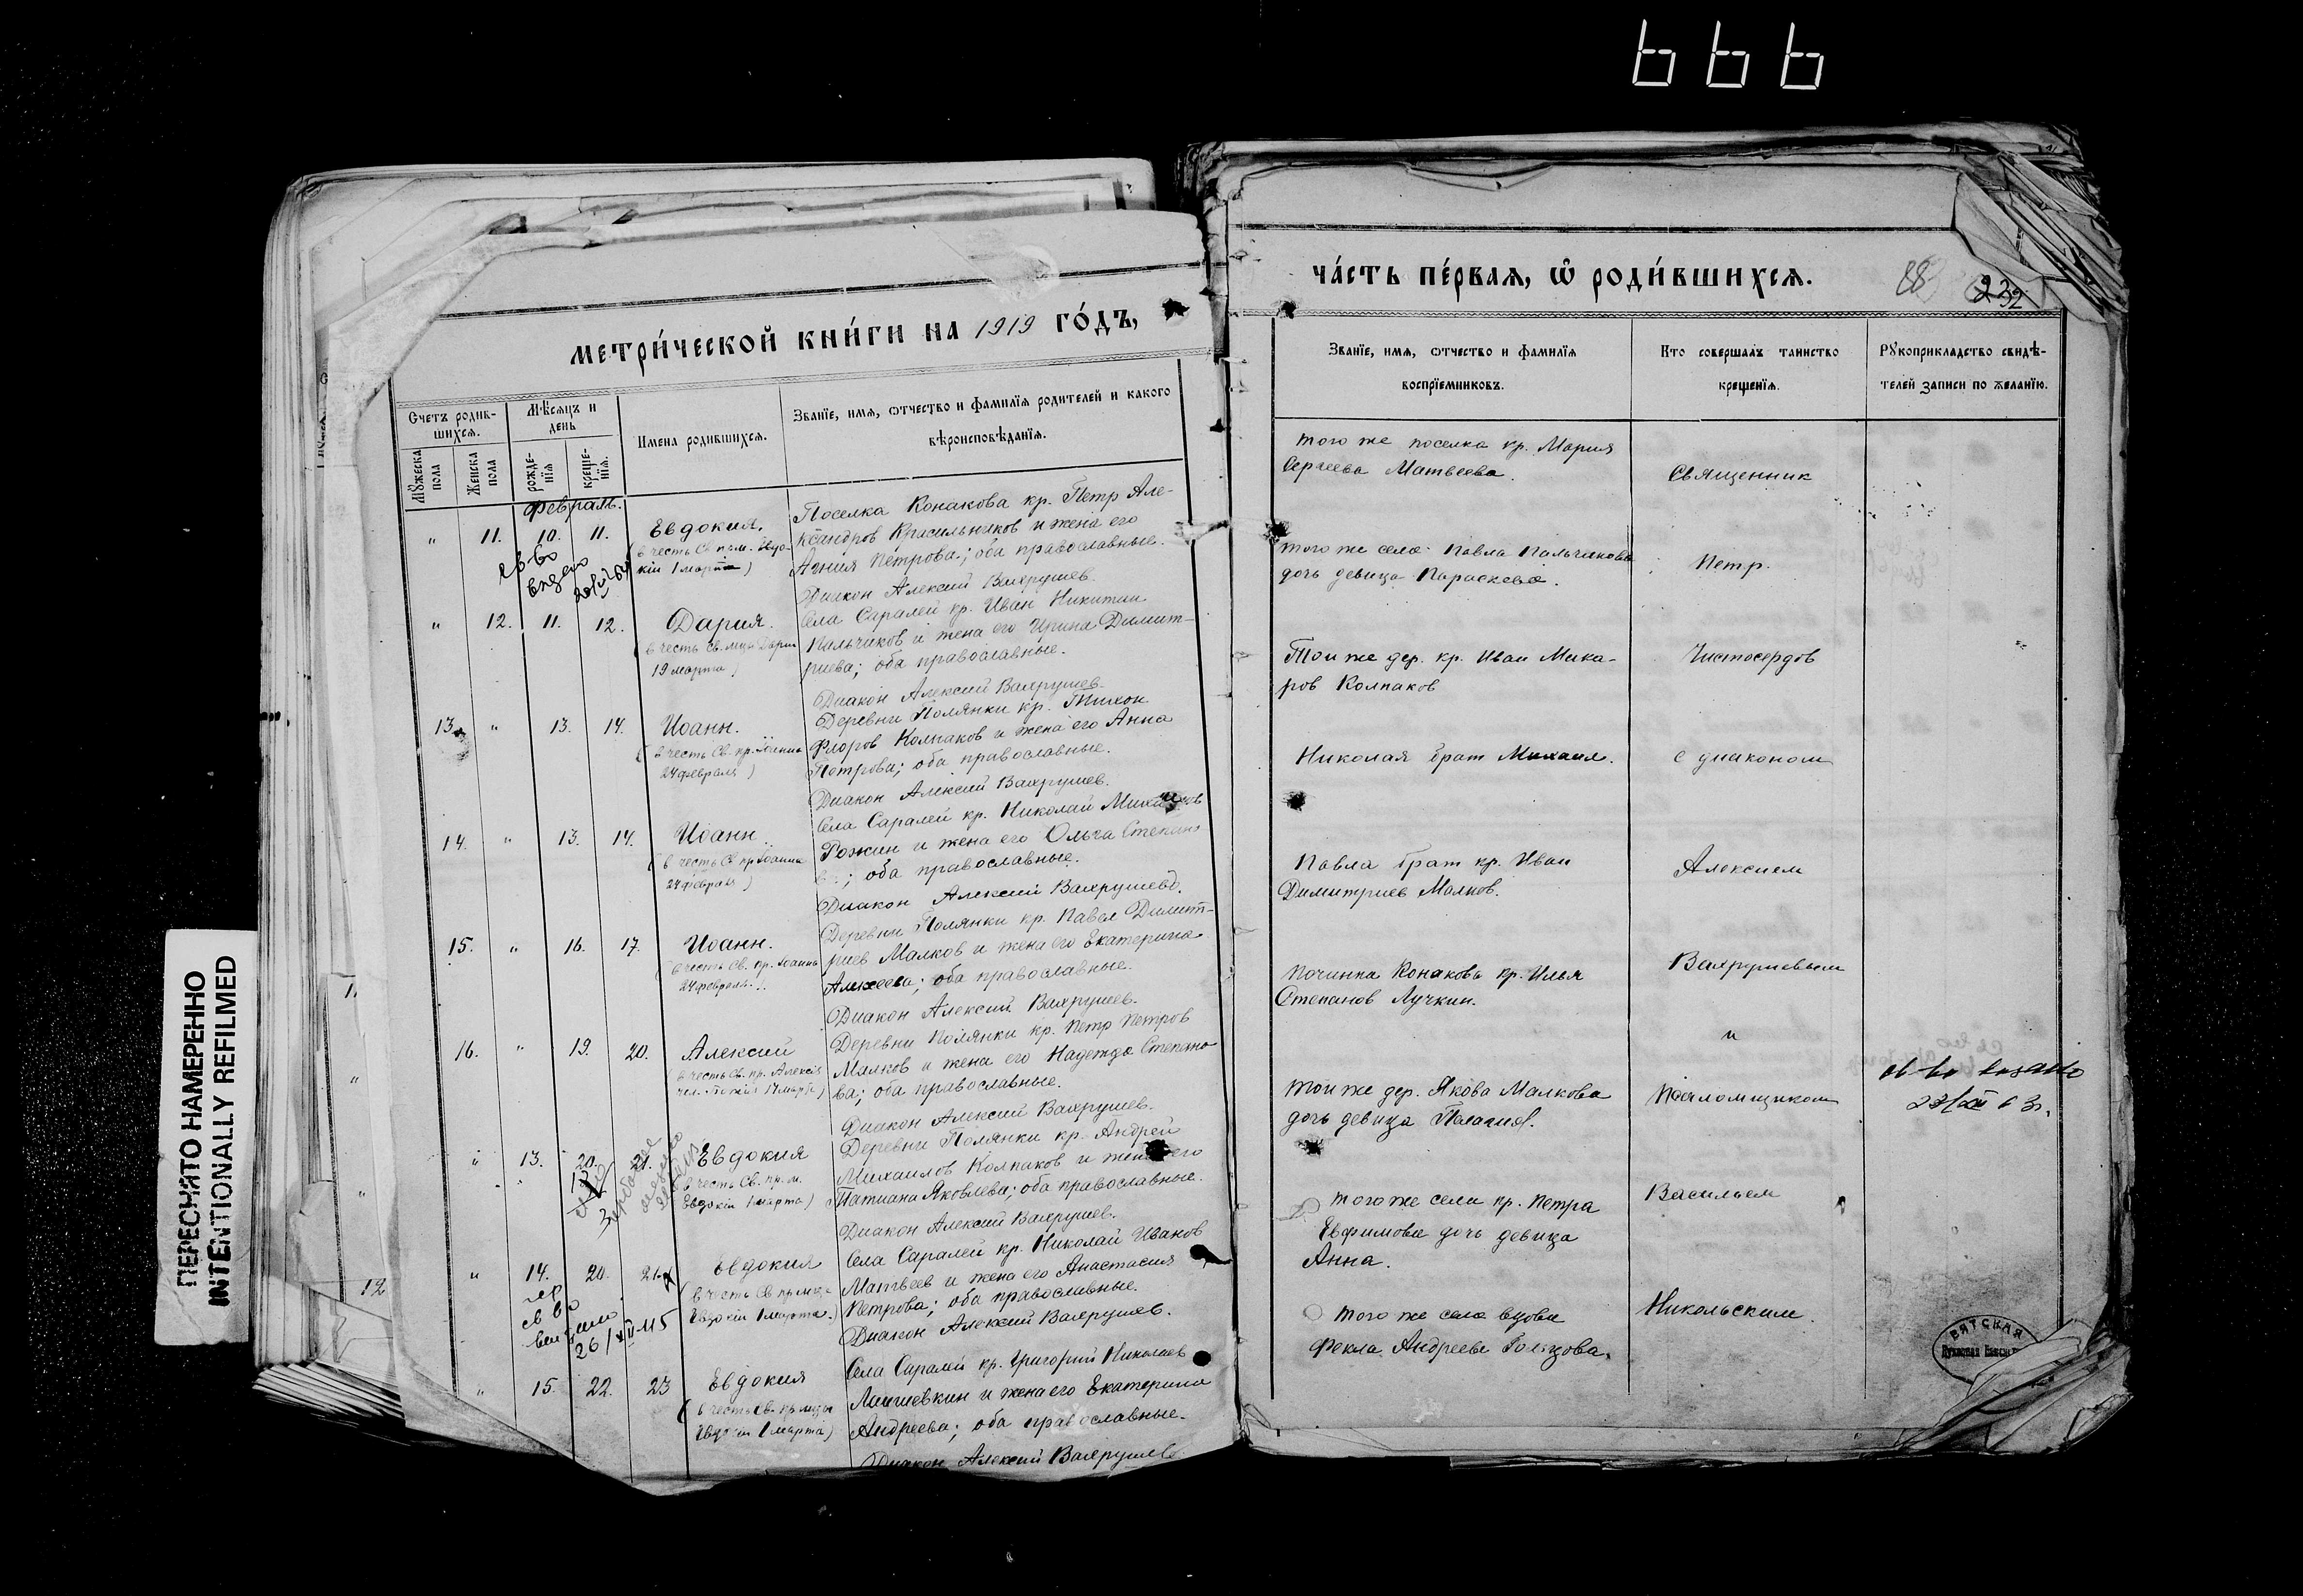 666
ПЕРЕСНЯТО НАМЕРЕННО
INTENTIONALLY REFILMED
метри́ческой кни́ги на 1919 го́дъ,
Счетъ родив-
шихся.
Мѣсяцъ и
день
Имена родившихся.
Званїе, имя, ѡтчество и фамилїя родителей и какого
вѣроисповѣданїя.
Мꙋжеска
пола
Женска
пола
рожде-
нїя
креще-
нїя.
февраль.
" 11. 10. 11. Евдокия.
(в честь Св. прм. Евдо-
кіи 1 марта)
Поселка Конакова кр. Петр Але-
ксандров Красильников и жена его
Агния Петрова; оба православные.
Диакон Алексий Вахрушев.
" 12. 11. 12. Дария.
(в честь Св. мцы Дарии
19 марта)
Села Саралей кр. Иван Никитин
Пальчиков и жена его Ирина Димит-
риева; оба православные.
Диакон Алексий Вахрушев.
13. " 13. 14. Иоанн.
(в честь Св. пр. Іоанна
24 февраля)
Деревни Полянки кр. Тихон
Флоров Колпаков и жена его Анна
Петрова; оба православные.
Диакон Алексий Вахрушев.
14. " 13. 14. Иоанн.
(в честь Св. пр. Іоанна
24 февраля)
Села Саралей кр. Николай Михайлов
Рожин и жена его Ольга Степано
ва; оба православные.
Диакон Алексий Вахрушев.
15. " 16. 17. Иоанн.
(в честь Св. пр. Іоанна
24 февраля.
Деревни Полянки кр. Павел Димит-
риев Малков и жена его Екатерина
Алексеева; оба православные.
Диакон Алексий Вахрушев.
16. " 19. 20. Алексий
(в честь Св. пр. Алексія
чел. Божія 17 марта)
Деревни Полянки кр. Петр Петров
Малков и жена его Надежда Степано
ва; оба православные.
Диакон Алексий Вахрушев.
" 13. 20. 21. Евдокия
(в честь Св. пр. м.
Евдокіи 1 марта)
Деревни Полянки кр. Андрей
Михаилов Колпаков и жена его
Татиана Яковлева; оба православные.
Диакон Алексий Вахрушев.
" 14. 20. 21. Евдокия
(в честь Св. пр. мцы
Евдокіи 1 марта.)
Села Саралей кр. Николай Иванов
Матвеев и жена его Анастасия
Петрова; оба православные.
Диакон Алексий Вахрушев.
" 15. 22. 23 Евдокия
(в честь Св. пр. мцы
Евдокіи 1 марта)
Села Саралей кр. Григорий Николаев
и жена его Екатерина
Андреева; оба православные.
Диакон Алексий Вахрушев
ча́сть пе́рвая, ѡ роди́вшихся.
232
Званїе, имя, ѡтчество и фамилїя
воспрїемниковъ.
Кто совершалъ таинство
крещенїя.
Рꙋкоприкладство свидѣ-
телей записи по желанїю.
того же поселка кр. Мария
Сергеева Матвеева.
того же села Павла Пальчикова
дочь девица Параскева.
Той же дер. кр. Иван Мака-
ров Колпаков
Николая брат Михаил.
Павла брат кр. Иван
Димитриев Малков.
Починка Конакова кр. Илья
Степанов Лучкин.
Той же дер. Якова Малкова
дочь девица Пелагия.
того же села кр. Петра
Евфимова дочь девица
Анна.
того же села вдова
Фекла Андреева
Священник
Петр
Чистосердов
с диаконом
Алексием
Вахрушевым
и
псаломщиком
Васильем
Никольским.
ВЯТСКАЯ
Духовная